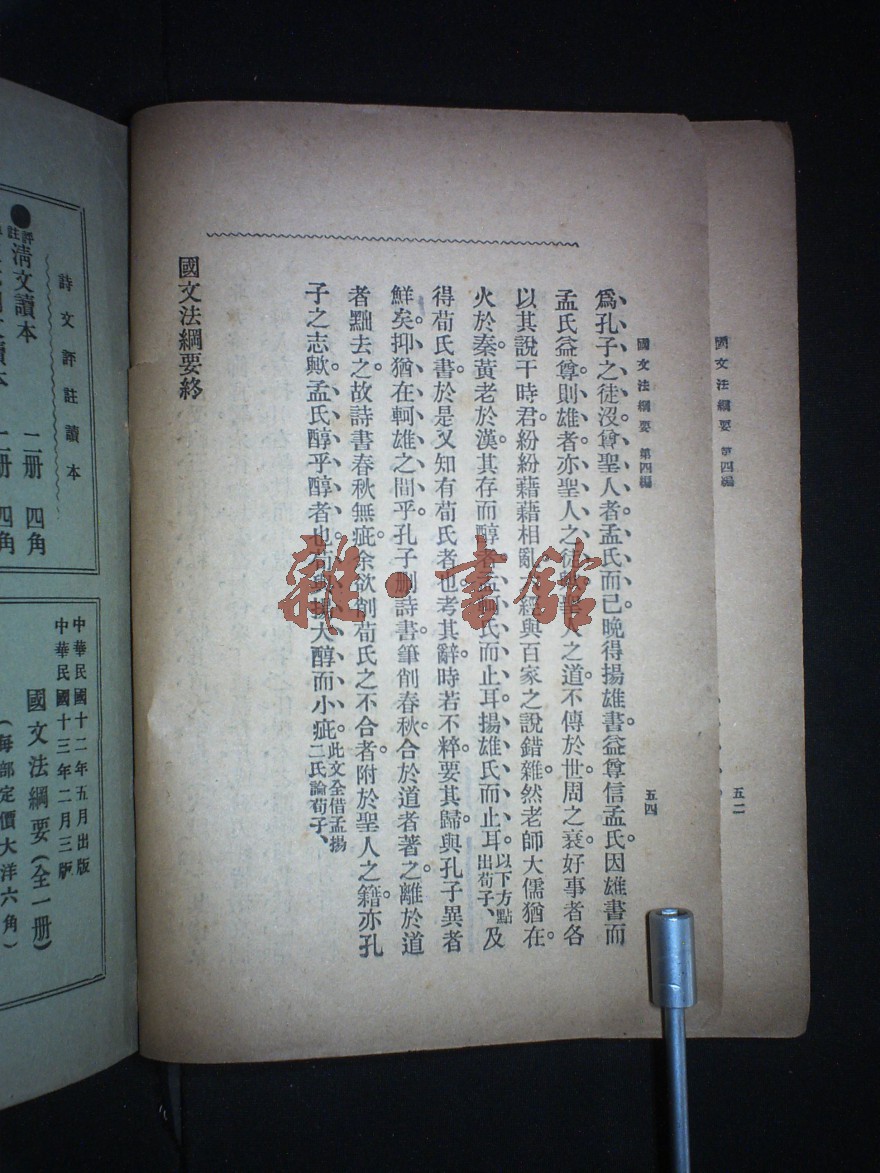 國文法綱要 第四編 五二
國文法綱要 第四編 五四
爲孔子之徒沒尊聖人者孟氏而已晚得揚雄書益尊信孟氏因雄書而
孟氏益尊則雄者亦聖人之徒歟聖人之道不傳於世周之衰好事者各
以其說干時君紛紛藉藉相亂六經與百家之說錯雜然老師大儒猶在。
火於秦黃老於漢。其存而醇者孟軻氏而止耳揚雄氏而止耳。以下方點出荀子、及
得荀氏書於是又知有荀氏者也。考其辭時若不粹要其歸與孔子異者
鮮矣。抑猶在軻雄之間乎。孔子刪詩書筆削春秋合於道者著之。離於道
者黜去之。故詩書春秋無疵余欲削荀氏之不合者附於聖人之籍。亦孔
子之志歟。孟氏醇乎醇者也。荀與揚大醇而小疵。此文全借孟揚二氏論荀子、
國文法綱要終
雜·書館
詩文評註讀本
●評註清文讀本 二册 四角
讀本 二册 四角
中華民國十二年五月出版
中華民國十三年二月三版
國文法綱要(全一册)
(每部定價大洋六角)